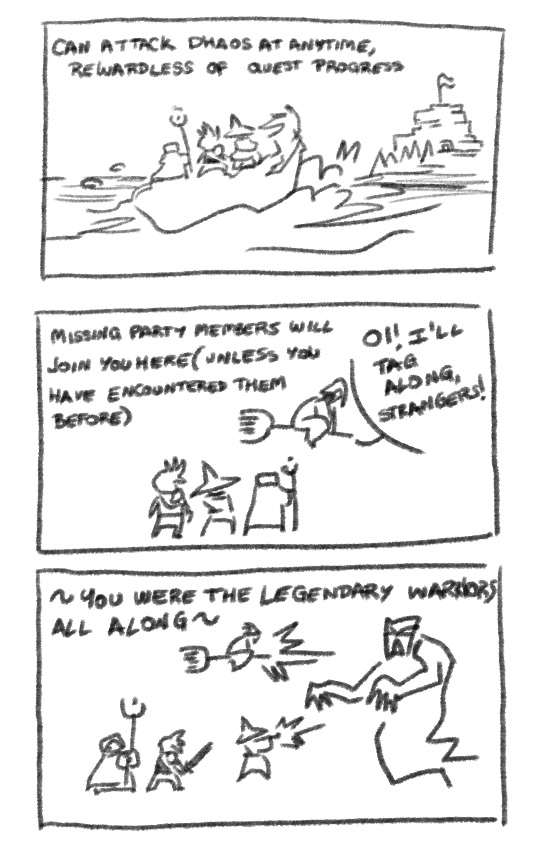 CAN ATTACK DHAOS AT ANYTIME,
REWARDLESS OF QUEST PROGRESS
MISSING PARTY MEMBERS WILL
JOIN YOU HERE (UNLESS YOU
HAVE ENCOUNTERED THEM
BEFORE)
OI! I'LL
TAG
ALONG,
STRANGERS!
~YOU WERE THE LEGENDARY WARRIORS
ALL ALONG~